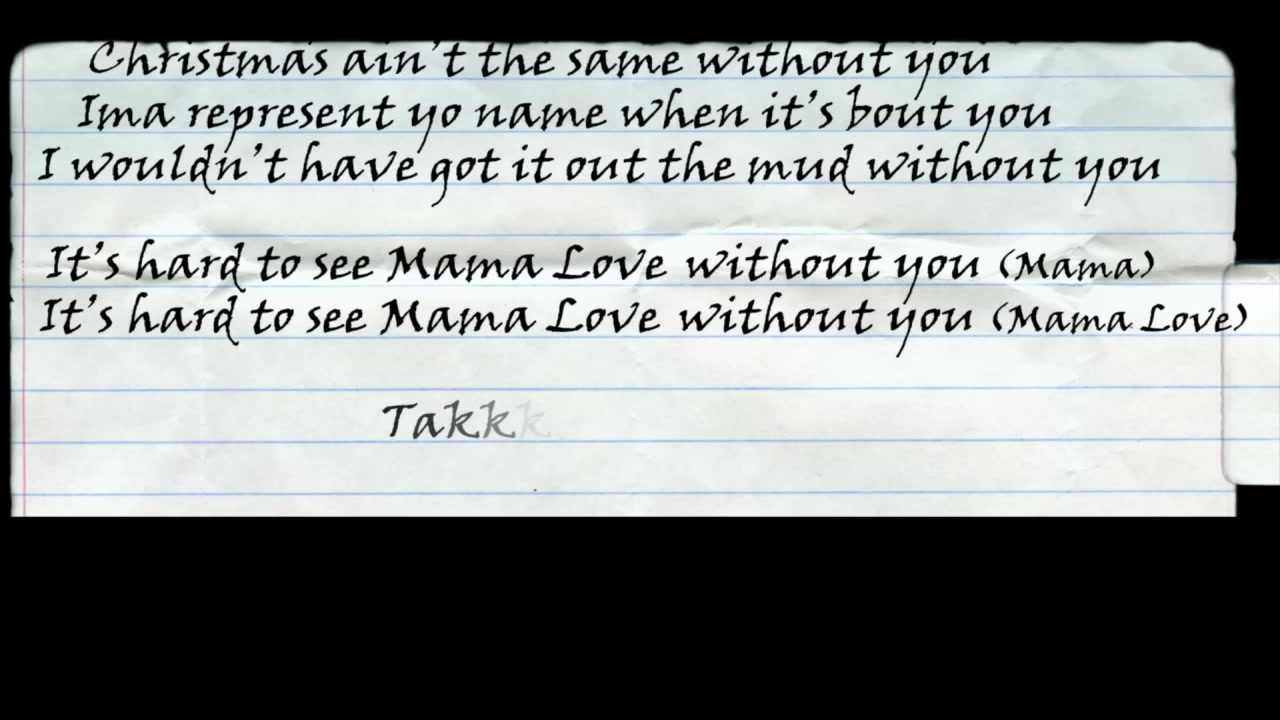 Christmas ain't the same without you
Ima represent yo name when it's bout you
I wouldn't have got it out the mud without you
It's hard to see Mama Love without you (Mama)
It's hard to see Mama Love without you (Mama Love)
Takkk